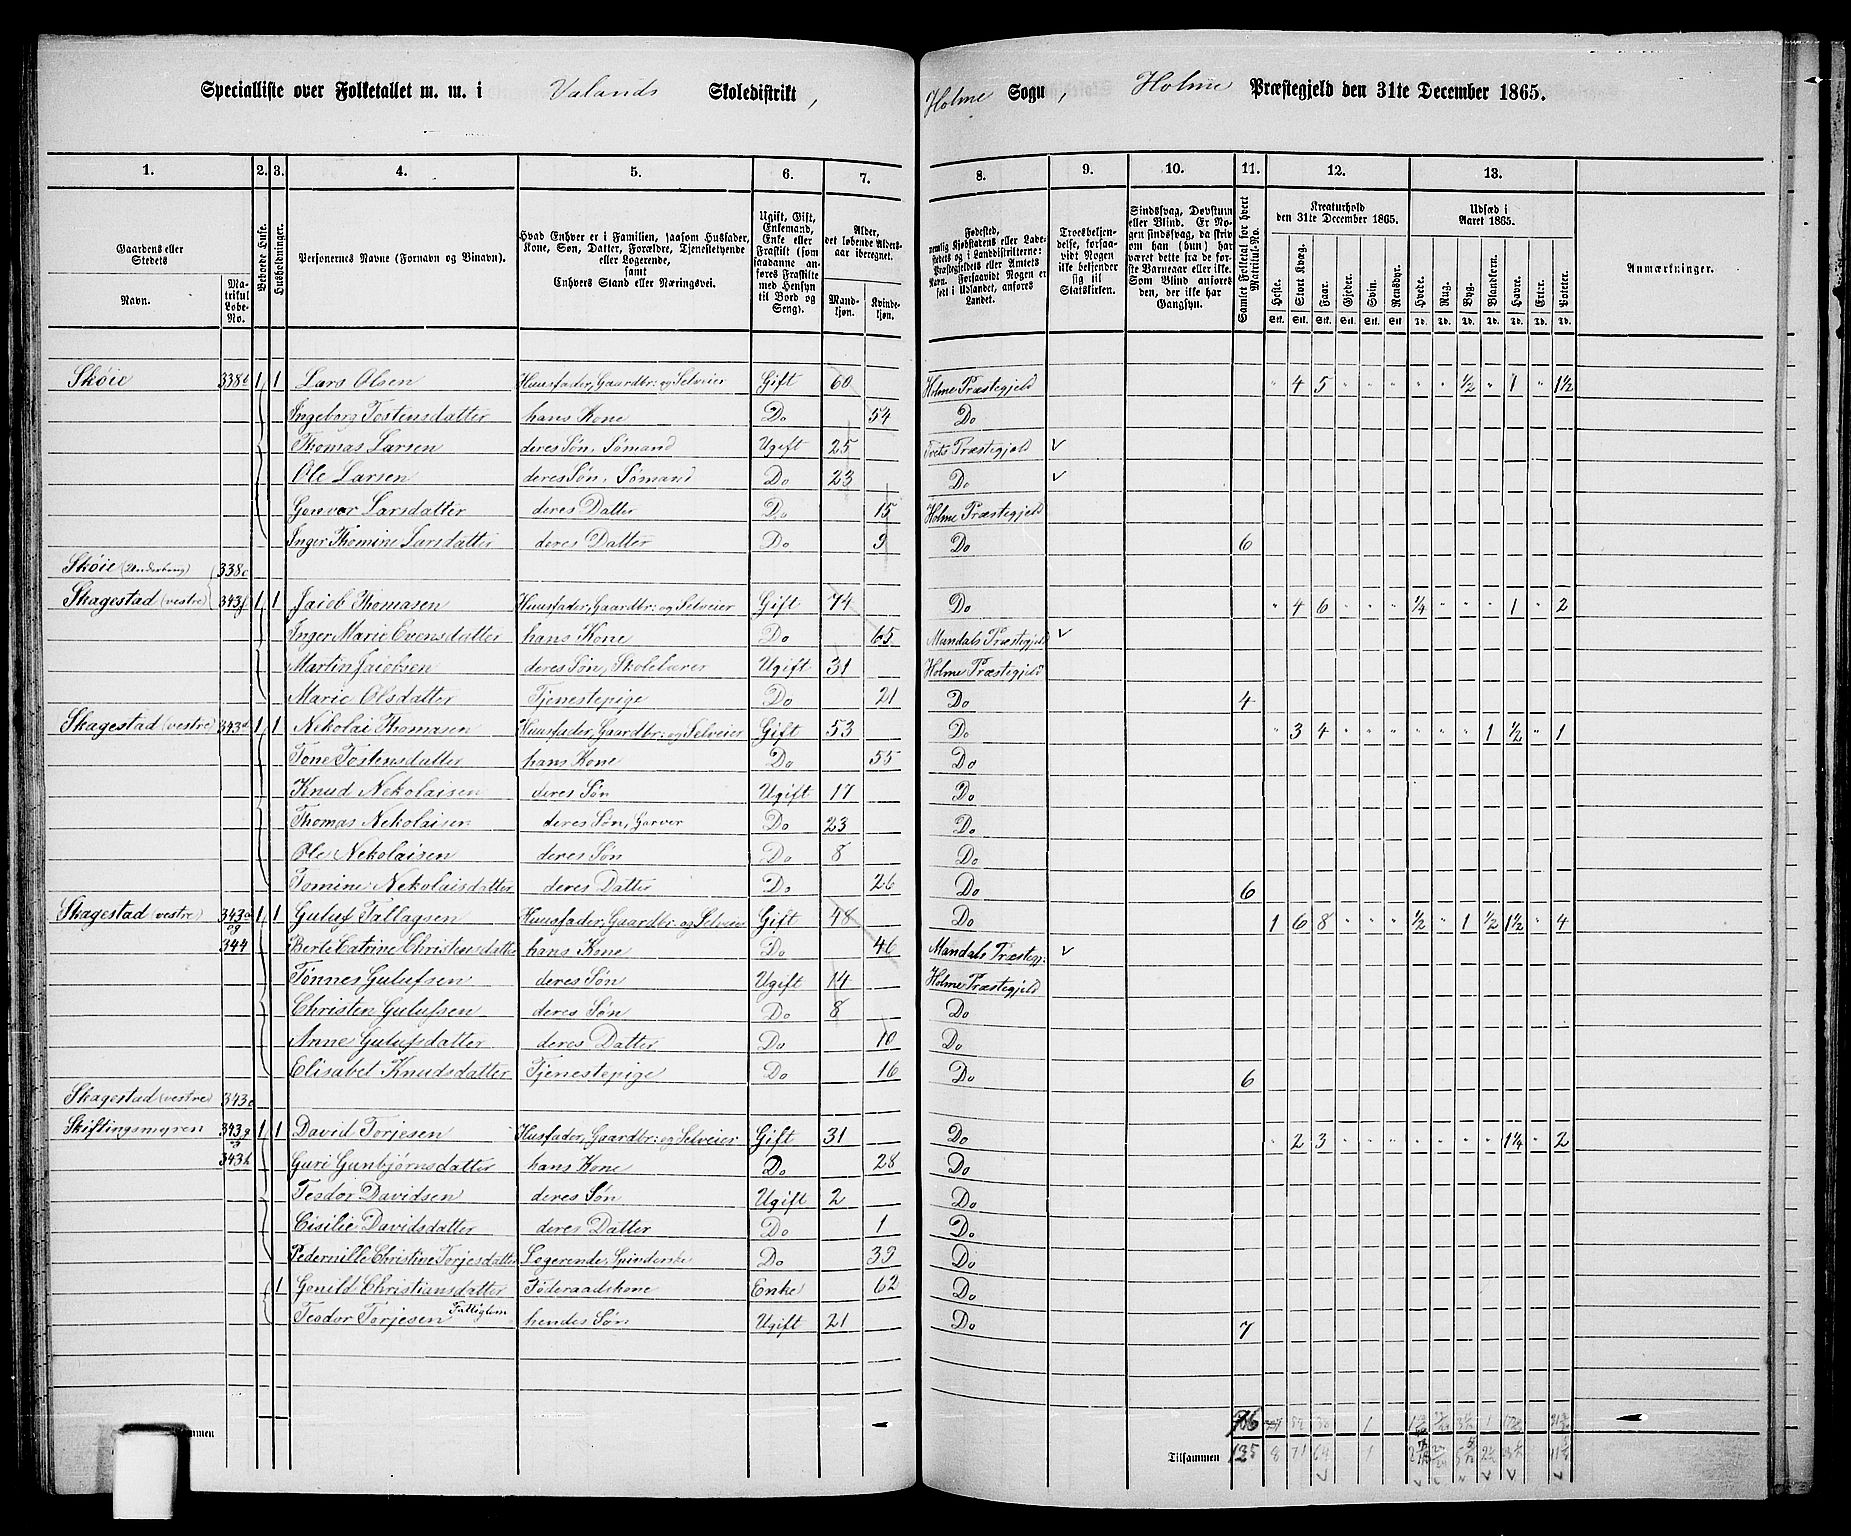 Specialliste over Folketallet m. m. i Valands Skoledistrikt, Holme Sogn, Holme Præstegjeld den 31te December 1865.
1. 2. 3. 4. 5. 6. 7. 8. 9. 10. 11. 12. 13.
Gaardens eller Stedets Navn. Matrikul Løbe-No.
Beboede Huse.
Husholdninger.
Personernes Navne (Fornavn og Tilnavn).
Hvad Enhver er i Familien, saasom Husfader, Kone, Søn, Datter, Forældre, Tjenestetyende eller Logerende, samt Enhvers Stand eller Næringsvei.
Ugift, Gift, Enkemand, Enke eller Fraskilt (som saadanne anføres Fraskilte med Hensyn til Bord og Seng).
Alder, det løbende Aldersaar iberegnet. Mandkjøn. Kvindekjøn.
Anmærkninger.
Kreaturhold den 31te December 1865. Heste. Stort Kvæg. Faar. Gjeder. Svin. Rensdyr.
Udsæd i Aaret 1865. Hvede. Rug. Byg. Blandkorn. Havre. Erter. Poteter.
Skøie 338b 1 1 Lars Olsen Huusfader, Gaardbr: og Selveier Gift 60 Holme Præstegjeld " 4 5 " " " " " ½ " 1 " 1½
Ingeborg Tostensdatter hans Kone Do 54 Do
Thomas Larsen deres Søn, Sømand Ugift 25 Præstegjeld
Ole Larsen deres Søn, Sømand Do 23 Do
Larsdatter deres Datter Do 15 Holme Præstegjeld
Inger Thomine Larsdatter deres Datter Do 9 Do 6
Skøie (Underbrug) 338c
Skagestad (vestre) 343f 1 1 Jacob Thomasen Huusfader, Gaardbr: og Selveier Gift 74 Do " 4 6 " " " ¼ " " " 1 " 2
Inger Marie Evensdatter hans Kone Do 65 Mandals Præstegjeld
Martin Jacobsen deres Søn, Skolelærer Ugift 31 Holme Præstegjeld
Marie Olsdatter Tjenestepige Do 21 Do 4
Skagestad (vestre) 343d 1 1 Nekolai Thomasen Huusfader, Gaardbr: og Selveier Gift 53 Do " 3 4 " " " " " " 1 ½ " 1
Tone Tostensdatter hans Kone Do 55 Do
Knud Nekolaisen deres Søn Ugift 17 Do
Thomas Nekolaisen deres Søn, Garver Do 23 Do
Ole Nekolaisen deres Søn Do 8 Do
Tomine Nekolaisdatter deres Datter Do 26 Do 6
Skagestad (vestre) 343a 1 1 Guluf Tallagsen Huusfader, Gaardbr: og Selveier Gift 48 Do 1 6 8 " " " ½ " 1 ½ 1½ " 4
og 344 Berte Catrine Christensdatter hans Kone Do 46 Mandals Præstegj:
Tønnes Gulufsen deres Søn Ugift 14 Holme Præstegjeld
Christen Gulufsen deres Søn Do 8 Do
Anne Gulufsdatter deres Datter Do 10 Do
Elisabet Knudsdatter Tjenestepige Do 16 Do 6
Skagestad (vestre) 343c
Skiftingsmyren 343g 1 1 David Torjesen Husfader, Gaardbr: og Selveier Gift 31 Do " 2 3 " " " " " " " 1¼ " 2
343h Guri Gunbjørnsdatter hans Kone Do 28 Do
Teodor Davidsen deres Søn Ugift 2 Do
Cisilie Davidsdatter deres Datter Do 1 Do
Pedernille Christine Torjesdatter Logerende, Spinderske Do 33 Do
1 Gunild Christiansdatter Føderaadskone Enke 62 Do
Teodor Torjesen Fattiglem hendes Søn Ugift 21 Do 7
76
Tilsammen 135 8 71 64 1